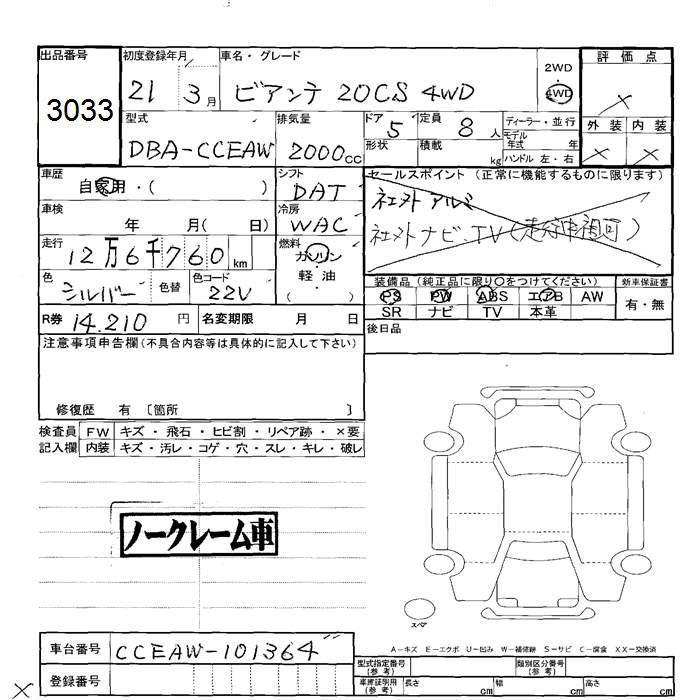 出品番号 初度登録年月 車名・グレード 2WD 評価点
3033 21 3月 ビアンテ 20CS 4WD 4WD ×
型式 排気量 ドア 5 定員 8人 ディーラー・並行 外装 内装
DBA-CCEAW 2000cc 形状 積載 kg モデル年式 年 ハンドル 左・右 × ×
車歴 シフト セールスポイント (正常に機能するものに限ります)
自家用・( ) DAT 社外アルミ
車検 年 月( 日) 冷房 WAC 社外ナビ、TV(走行中視可)
走行 12万6千760km 燃料 ガソリン・軽油( )
色 シルバー 色替 色コード 22V 装備品 (純正品に限り○をつけてください) 新車保証書
PS PW ABS エアB AW 有・無
R券 14.210円 名変期限 月 日 SR ナビ TV 本革
注意事項申告欄(不具合内容等は具体的に記入して下さい) 後日品
修復歴 有 〔箇所 〕
検査員 FW キズ・飛石・ヒビ割・リペア跡・×要
記入欄 内装 キズ・汚レ・コゲ・穴・スレ・キレ・破レ
ノークレーム車
スペア
A-キズ E-エクボ U-凹み W-補修跡 S-サビ C-腐食 XX-交換済
車台番号 CCEAW-101364 型式指定番号(参考) 類別区分番号(参考)
登録番号 車庫証明用(参考) 長さ cm 幅 cm 高さ cm
×